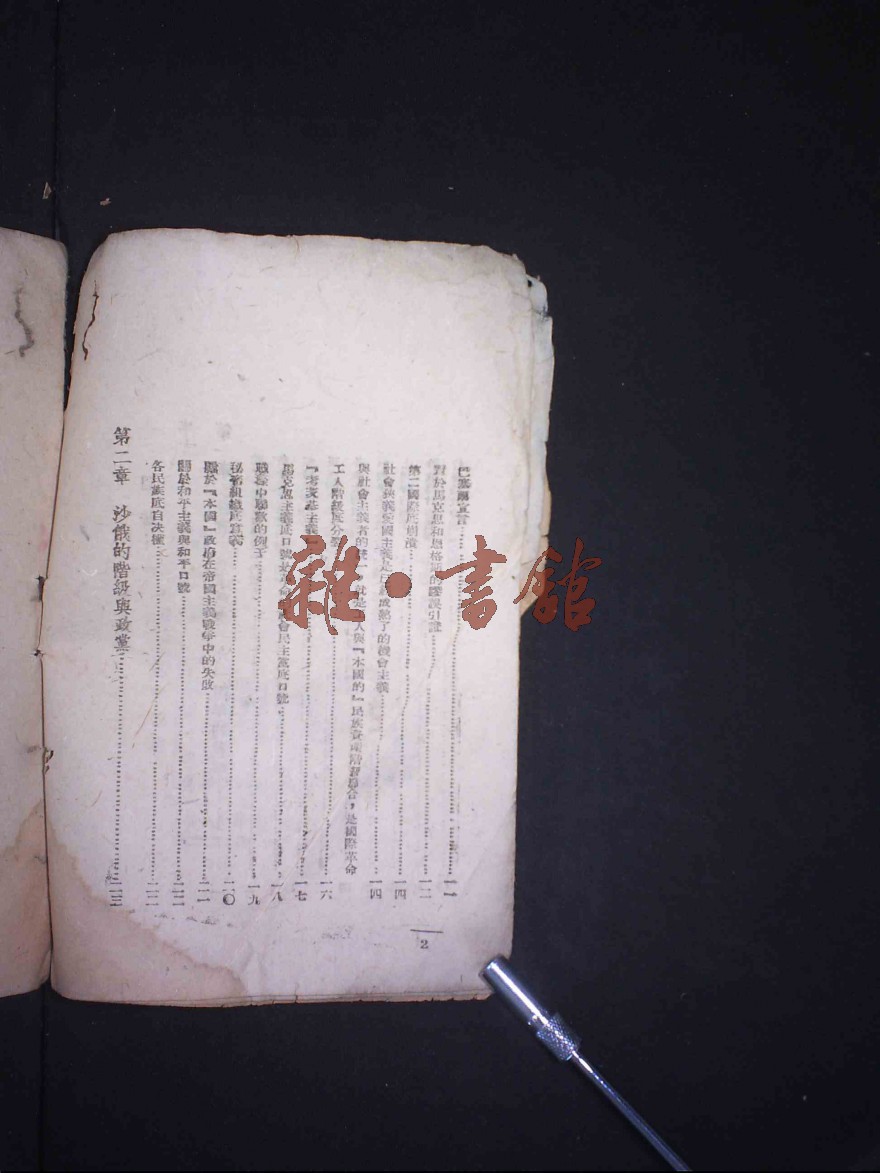 巴塞爾宣言……一一
對於馬克思和恩格斯的謬誤引證……一二
第二國際底崩潰……一四
社會狹義愛國主義是已經成熟了的機會主義……一四
與社會主義者的統一,就是工人與『本國的』民族資產階級聯合,是國際革命
工人階級底分裂……一六
『考茨基主義』……一七
馬克思主義底口號是革命的社會民主黨底口號……一八
戰壕中聯歡的例子……一九
秘密組織底意義……二〇
關於『本國』政府在帝國主義戰爭中的失敗……二一
關於和平主義與和平口號……二二
各民族底自決權……二二
第二章 沙俄的階級與政黨……二三
2
雜·書館